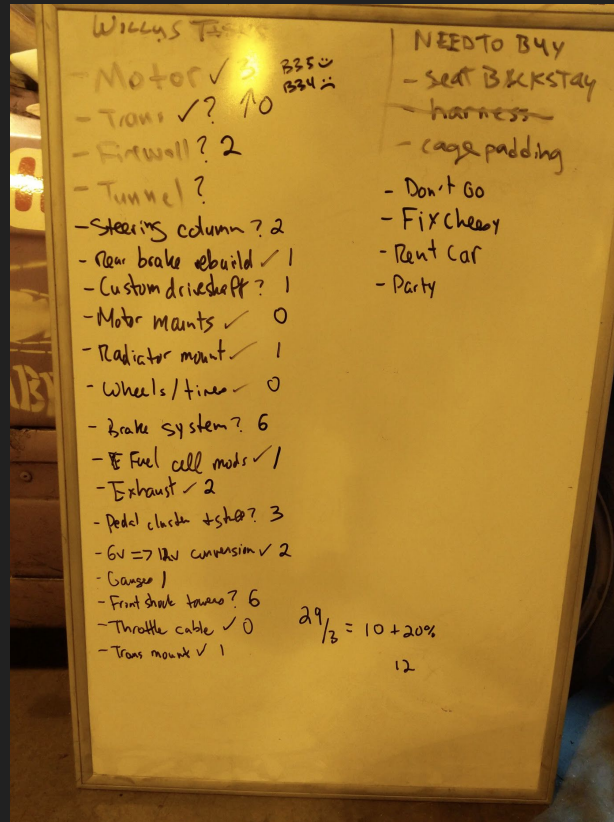 WILLYS TASKS
- Motor ✓ 3 B35 :) B34 :(
- Trans ✓? ↑0
- Firewall? 2
- Tunnel?
- Steering column? 2
- Rear brake rebuild ✓ 1
- Custom driveshaft? 1
- Motor mounts ✓ 0
- Radiator mount ✓ 1
- Wheels/tires ✓ 0
- Brake system? 6
- Fuel cell mods ✓ 1
- Exhaust ✓ 2
- Pedal cluster + stuff? 3
- 6v => 12v conversion ✓ 2
- Gauges 1
- Front shock towers? 6
- Throttle cable ✓ 0
- Trans mount ✓ 1
29/3 = 10 + 20%
12
NEED TO BUY
- Seat BACKSTAY
- harness
- cage padding
- Don't Go
- Fix Cheesy
- Rent Car
- Party